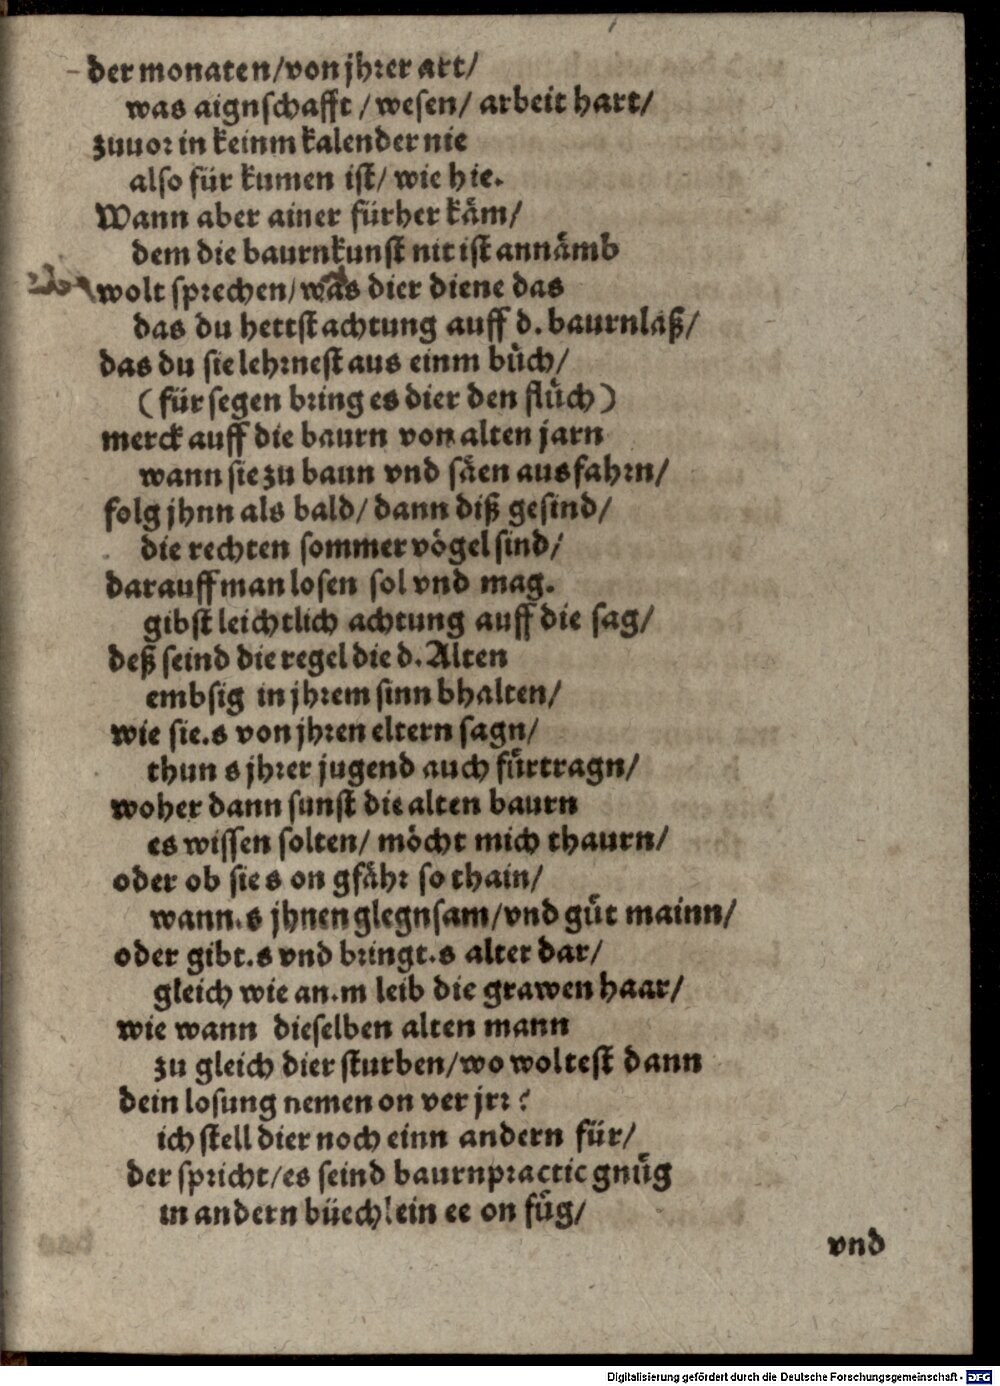 der monaten/von jhrer art/
was aignschafft/wesen/ arbeit hart/
zuuor in keinm kalender nie
also für kumen ist/ wie hie.
Wann aber ainer fürher kåm/
dem die baurnkunst nit ist annåmb
wolt sprechen/was dier diene das
das du hettst achtung auff d.baurnlåß/
das du sie lehrnest aus einm bůch/
(für segen bring es dier den flůch)
merck auff die baurn von alten jarn
wann sie zu baun vnd såen ausfahrn/
folg jhnn als bald/ dann diß gesind/
die rechten sommer vögel sind/
darauff man losen sol vnd mag.
gibst leichtlich achtung auff die sag/
deß seind die regel die d.Alten
embsig in jhrem sinn bhalten/
wie sie.s von jhren eltern sagn/
thun s jhrer jugend auch fürtragn/
woher dann sunst die alten baurn
es wissen solten/ möcht mich thaurn/
oder ob sie s on gfåhr so thain/
wann.s jhnen glegnsam/vnd gůt mainn/
oder gibt.s vnd bringt.s alter dar/
gleich wie an.m leib die grawen haar/
wie wann dieselben alten mann
zu gleich dier sturben/wo woltest dann
dein losung nemen on ver jrr?
ich stell dier noch einn andern für/
der spricht/es seind baurnpractic gnůg
in andern büechlein ee on fůg/
vnd
Digitalisierung gefördert durch die Deutsche Forschungsgemeinschaft - DFG